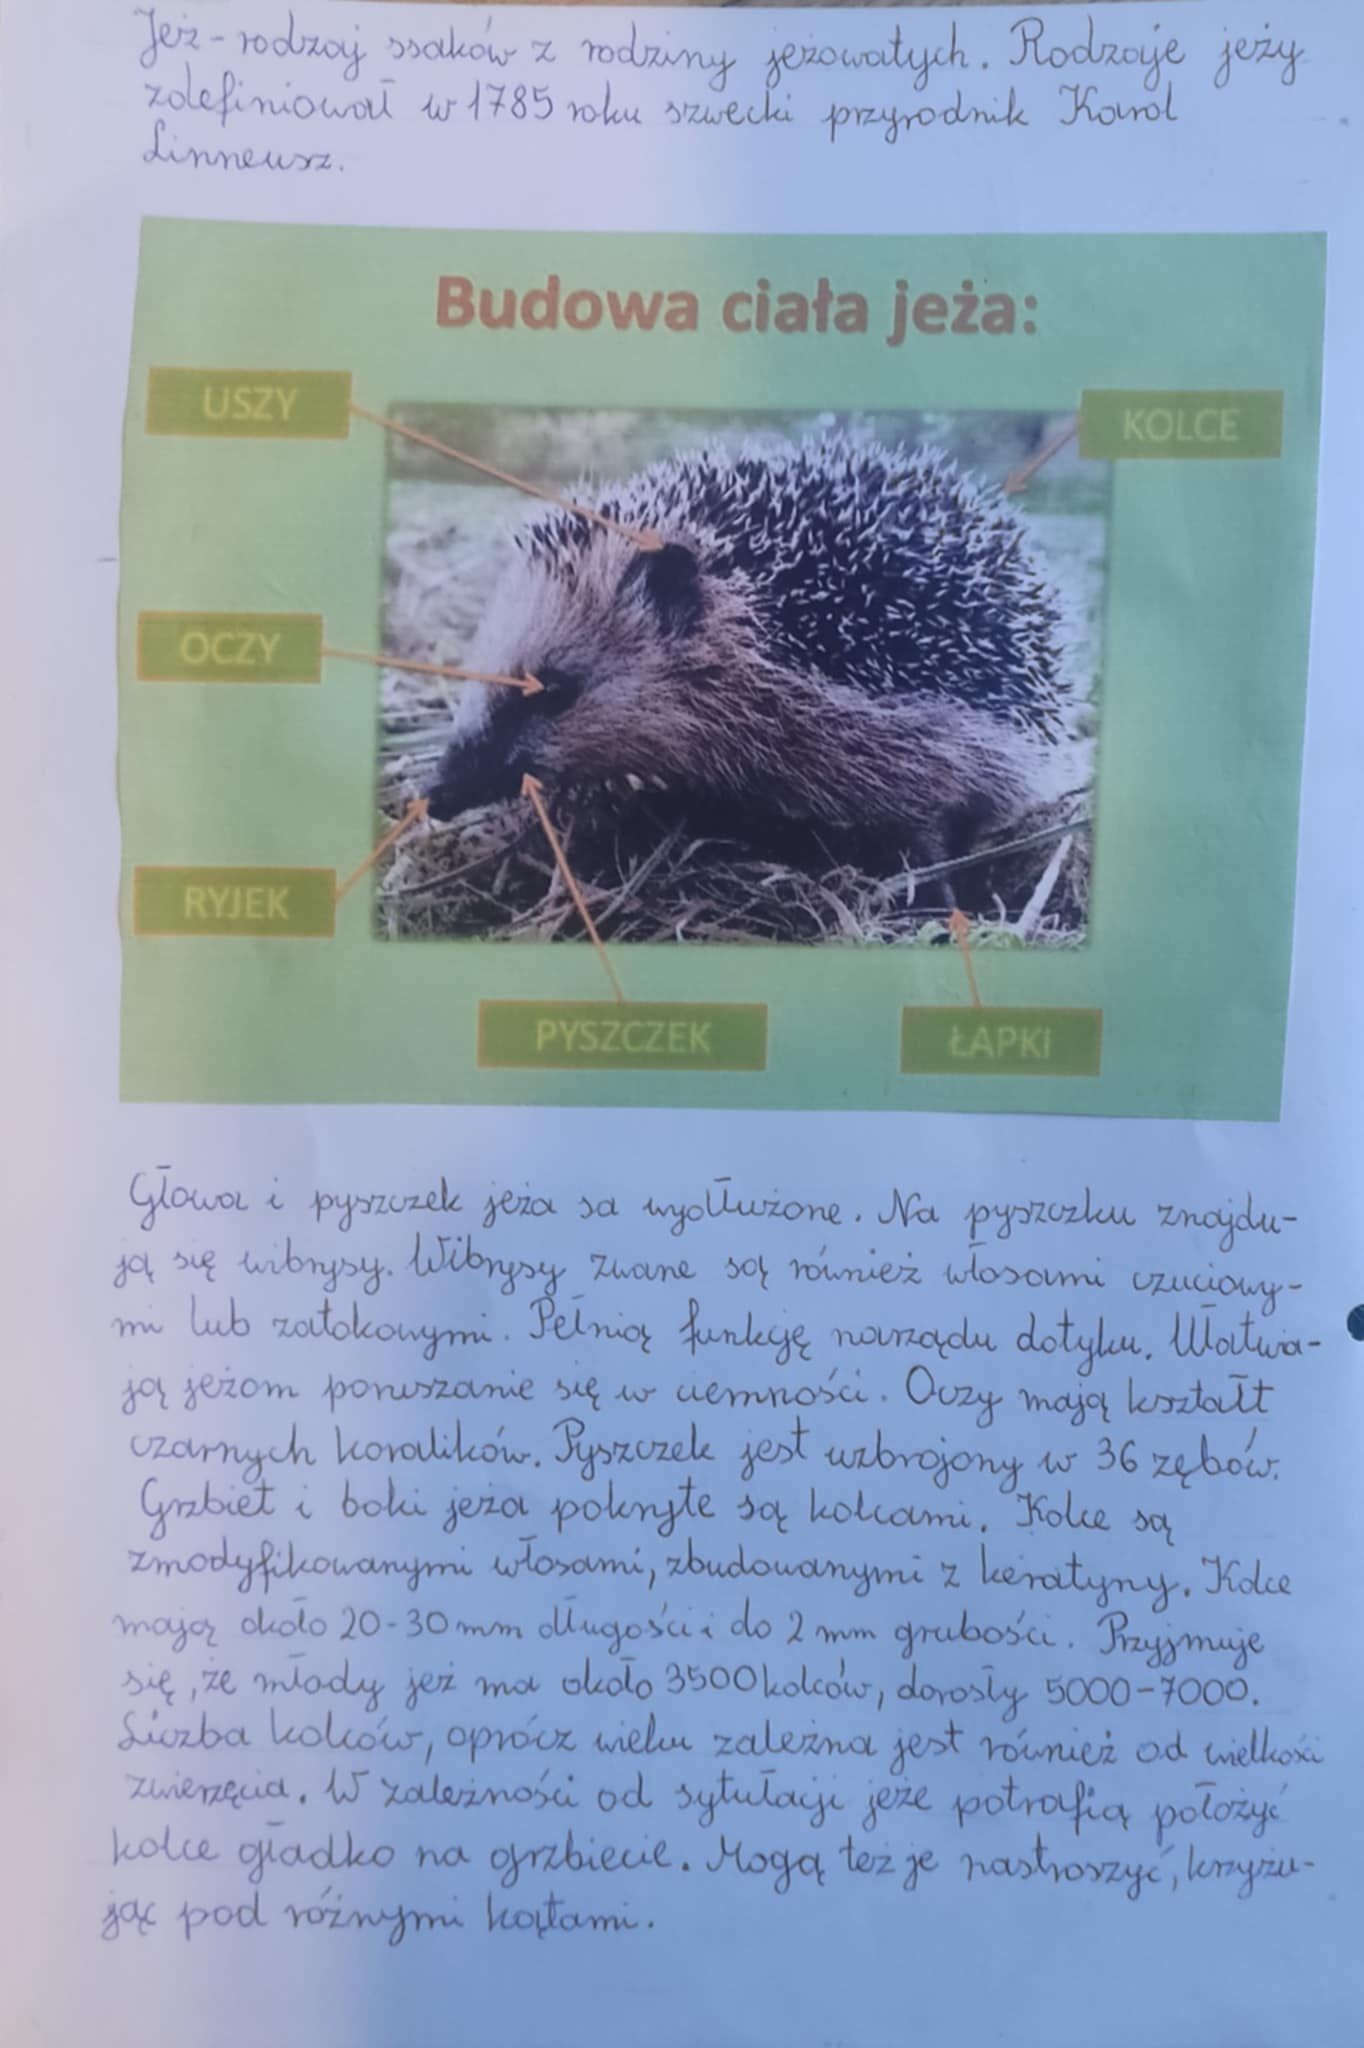 Jeż - rodzaj ssaków z rodziny jeżowatych. Rodzaje jeży
zdefiniował w 1785 roku szwecki przyrodnik Karol
Linneusz.
Budowa ciała jeża:
USZY
KOLCE
OCZY
RYJEK
PYSZCZEK
ŁAPKI
Głowa i pyszczek jeża sa wydłużone. Na pyszczku znajdu-
ją się wibrysy. Wibrysy zwane są również włosami czuciowy-
mi lub zatokowymi. Pełnią funkcję narządu dotyku. Ułatwia-
ją jeżom poruszanie się w ciemności. Oczy mają kształt
czarnych koralików. Pyszczek jest uzbrojony w 36 zębów.
Grzbiet i boki jeża pokryte są kolcami. Kolce są
zmodyfikowanymi włosami, zbudowanymi z keratyny. Kolce
mają około 20-30 mm długości i do 2 mm grubości. Przyjmuje
się, że młody jeż ma około 3500 kolców, dorosły 5000-7000.
Liczba kolców, oprócz wieku zależna jest również od wielkości
zwierzęcia. W zależności od sytułacji jeże potrafią położyć
kolce gładko na grzbiecie. Mogą też je nastroszyć, krzyżu-
jąc pod różnymi kątami.